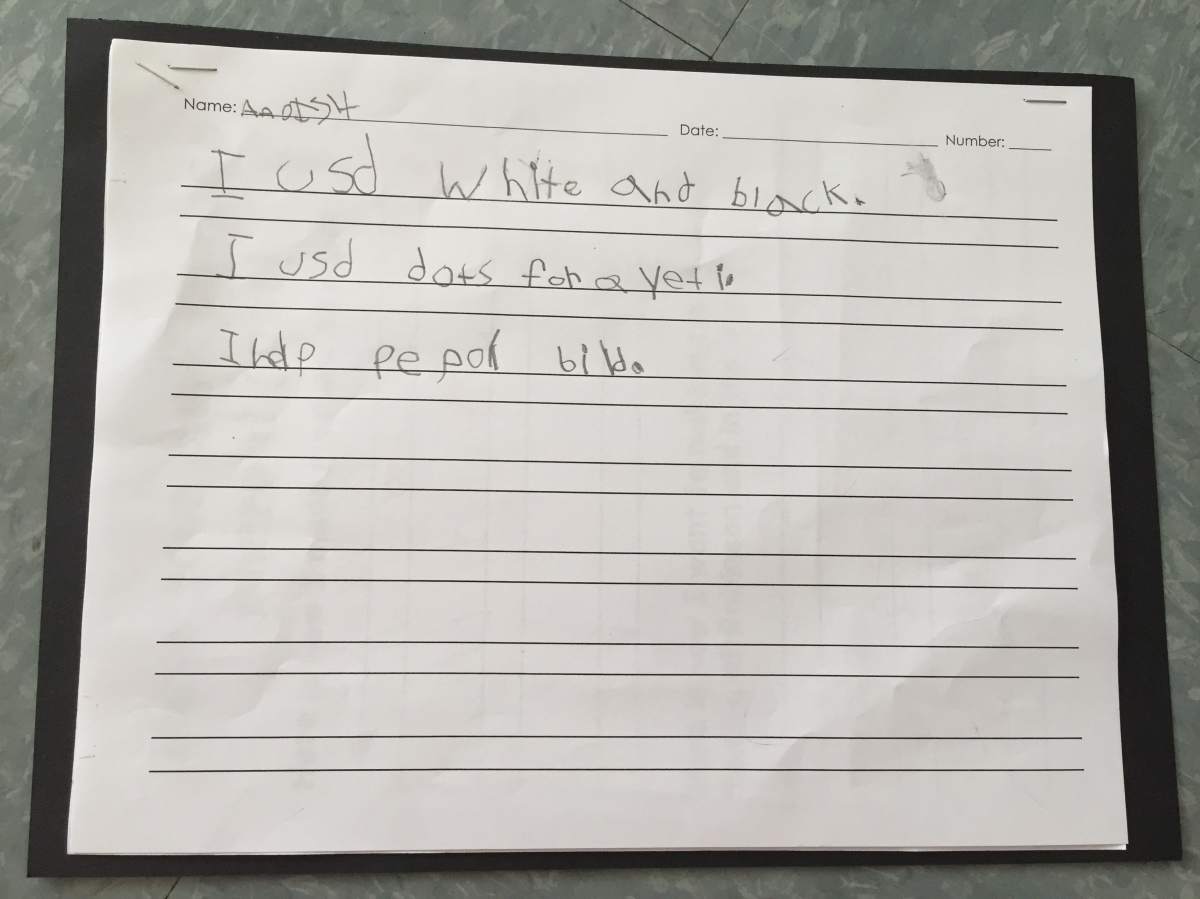 Name: Date: Number:
I usd white and black.
I usd dots for a yeti.
I help pepol bild.